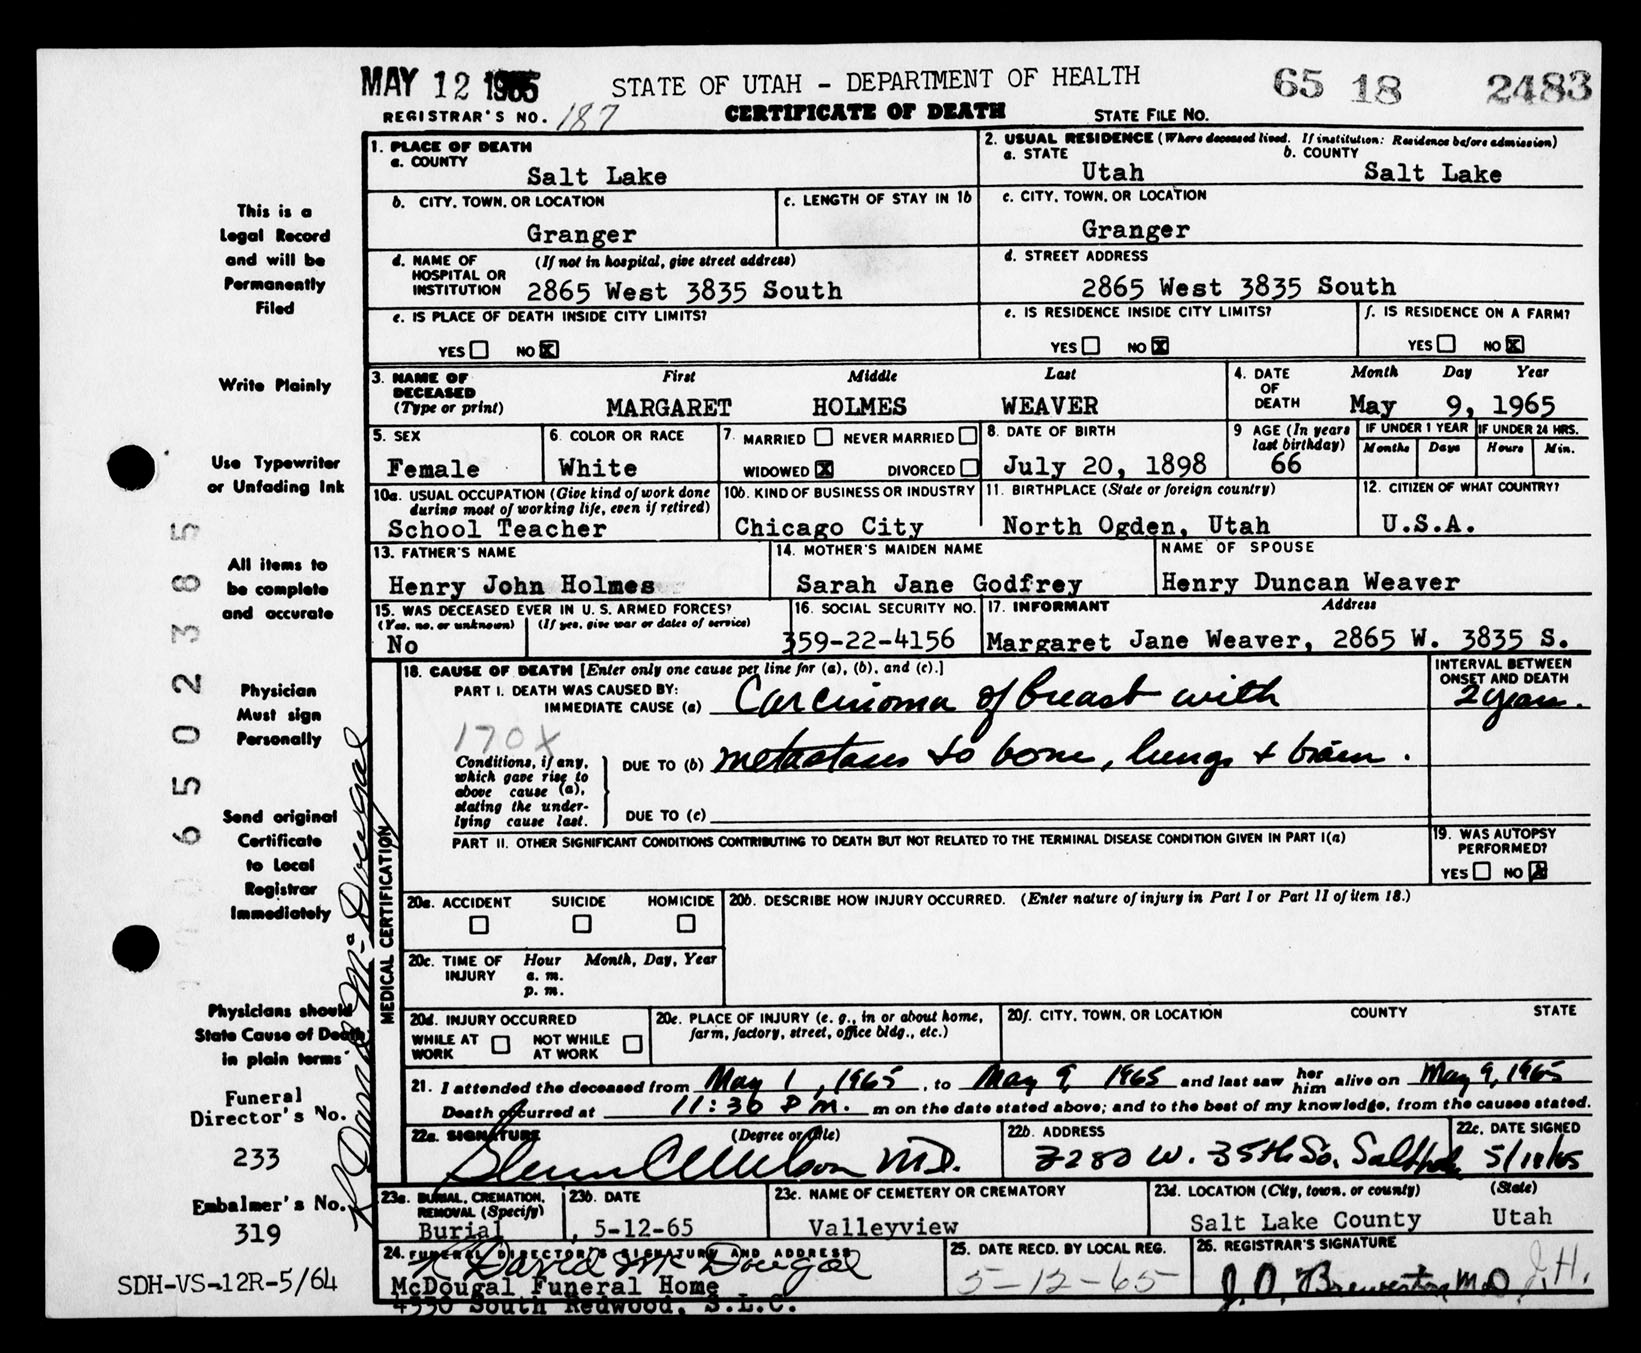 MAY 12 1965
STATE OF UTAH - DEPARTMENT OF HEALTH
65 18 2483
REGISTRAR'S NO. 187
CERTIFICATE OF DEATH
STATE FILE NO.
1. PLACE OF DEATH
a. COUNTY
Salt Lake
2. USUAL RESIDENCE (Where deceased lived. If institution: Residence before admission)
a. STATE b. COUNTY
Utah Salt Lake
b. CITY, TOWN, OR LOCATION
Granger
c. LENGTH OF STAY IN 1b
c. CITY, TOWN, OR LOCATION
Granger
d. NAME OF HOSPITAL OR INSTITUTION
(If not in hospital, give street address)
2865 West 3835 South
d. STREET ADDRESS
2865 West 3835 South
e. IS PLACE OF DEATH INSIDE CITY LIMITS?
YES NO X
e. IS RESIDENCE INSIDE CITY LIMITS?
YES NO X
f. IS RESIDENCE ON A FARM?
YES NO X
3. NAME OF DECEASED (Type or print)
First Middle Last
MARGARET HOLMES WEAVER
4. DATE OF DEATH
Month Day Year
May 9, 1965
5. SEX
Female
6. COLOR OR RACE
White
7. MARRIED NEVER MARRIED
WIDOWED X DIVORCED
8. DATE OF BIRTH
July 20, 1898
9 AGE (In years last birthday)
66
IF UNDER 1 YEAR
Months Days
IF UNDER 24 HRS.
Hours Min.
10a. USUAL OCCUPATION (Give kind of work done
during most of working life, even if retired)
School Teacher
10b. KIND OF BUSINESS OR INDUSTRY
Chicago City
11. BIRTHPLACE (State or foreign country)
North Ogden, Utah
12. CITIZEN OF WHAT COUNTRY?
U.S.A.
13. FATHER'S NAME
Henry John Holmes
14. MOTHER'S MAIDEN NAME
Sarah Jane Godfrey
NAME OF SPOUSE
Henry Duncan Weaver
15. WAS DECEASED EVER IN U. S. ARMED FORCES?
(Yes, no, or unknown) (If yes, give war or dates of service)
No
16. SOCIAL SECURITY NO.
359-22-4156
17. INFORMANT Address
Margaret Jane Weaver, 2865 W. 3835 S.
MEDICAL CERTIFICATION
18. CAUSE OF DEATH [Enter only one cause per line for (a), (b), and (c).]
INTERVAL BETWEEN ONSET AND DEATH
PART I. DEATH WAS CAUSED BY:
IMMEDIATE CAUSE (a) Carcinoma of breast with
2 years.
170X
Conditions, if any,
which gave rise to
above cause (a),
stating the under-
lying cause last.
DUE TO (b) metastases to bone, lungs + brain.
DUE TO (c)
PART II. OTHER SIGNIFICANT CONDITIONS CONTRIBUTING TO DEATH BUT NOT RELATED TO THE TERMINAL DISEASE CONDITION GIVEN IN PART I(a)
19. WAS AUTOPSY PERFORMED?
YES NO X
20a. ACCIDENT SUICIDE HOMICIDE
20b. DESCRIBE HOW INJURY OCCURRED. (Enter nature of injury in Part I or Part II of item 18.)
20c. TIME OF INJURY
Hour Month, Day, Year
a. m.
p. m.
20d. INJURY OCCURRED
WHILE AT WORK NOT WHILE AT WORK
20e. PLACE OF INJURY (e. g., in or about home,
farm, factory, street, office bldg., etc.)
20f. CITY, TOWN, OR LOCATION COUNTY STATE
21. I attended the deceased from May 1, 1965, to May 9, 1965 and last saw her him alive on May 9, 1965
Death occurred at 11:30 P m. m on the date stated above; and to the best of my knowledge, from the causes stated.
22a. SIGNATURE (Degree or title)
M.D.
22b. ADDRESS
3280 W. 35th So.
22c. DATE SIGNED
5/10/65
23a. BURIAL, CREMATION, REMOVAL (Specify)
Burial
23b. DATE
5-12-65
23c. NAME OF CEMETERY OR CREMATORY
Valleyview
23d. LOCATION (City, town, or county) (State)
Salt Lake County Utah
24. FUNERAL DIRECTOR'S SIGNATURE AND ADDRESS
R David McDougal
McDougal Funeral Home
4330 South Redwood, S.L.C.
25. DATE RECD. BY LOCAL REG.
5-12-65
26. REGISTRAR'S SIGNATURE
J.H.
This is a
Legal Record
and will be
Permanently
Filed
Write Plainly
Use Typewriter
or Unfading Ink
All items to
be complete
and accurate
Physician
Must sign
Personally
Send original
Certificate
to Local
Registrar
Immediately
Physicians should
State Cause of Death
in plain terms
Funeral
Director's No.
233
Embalmer's No.
319
SDH-VS-12R-5/64
6 5 0 2 3 8 5
R David McDougal